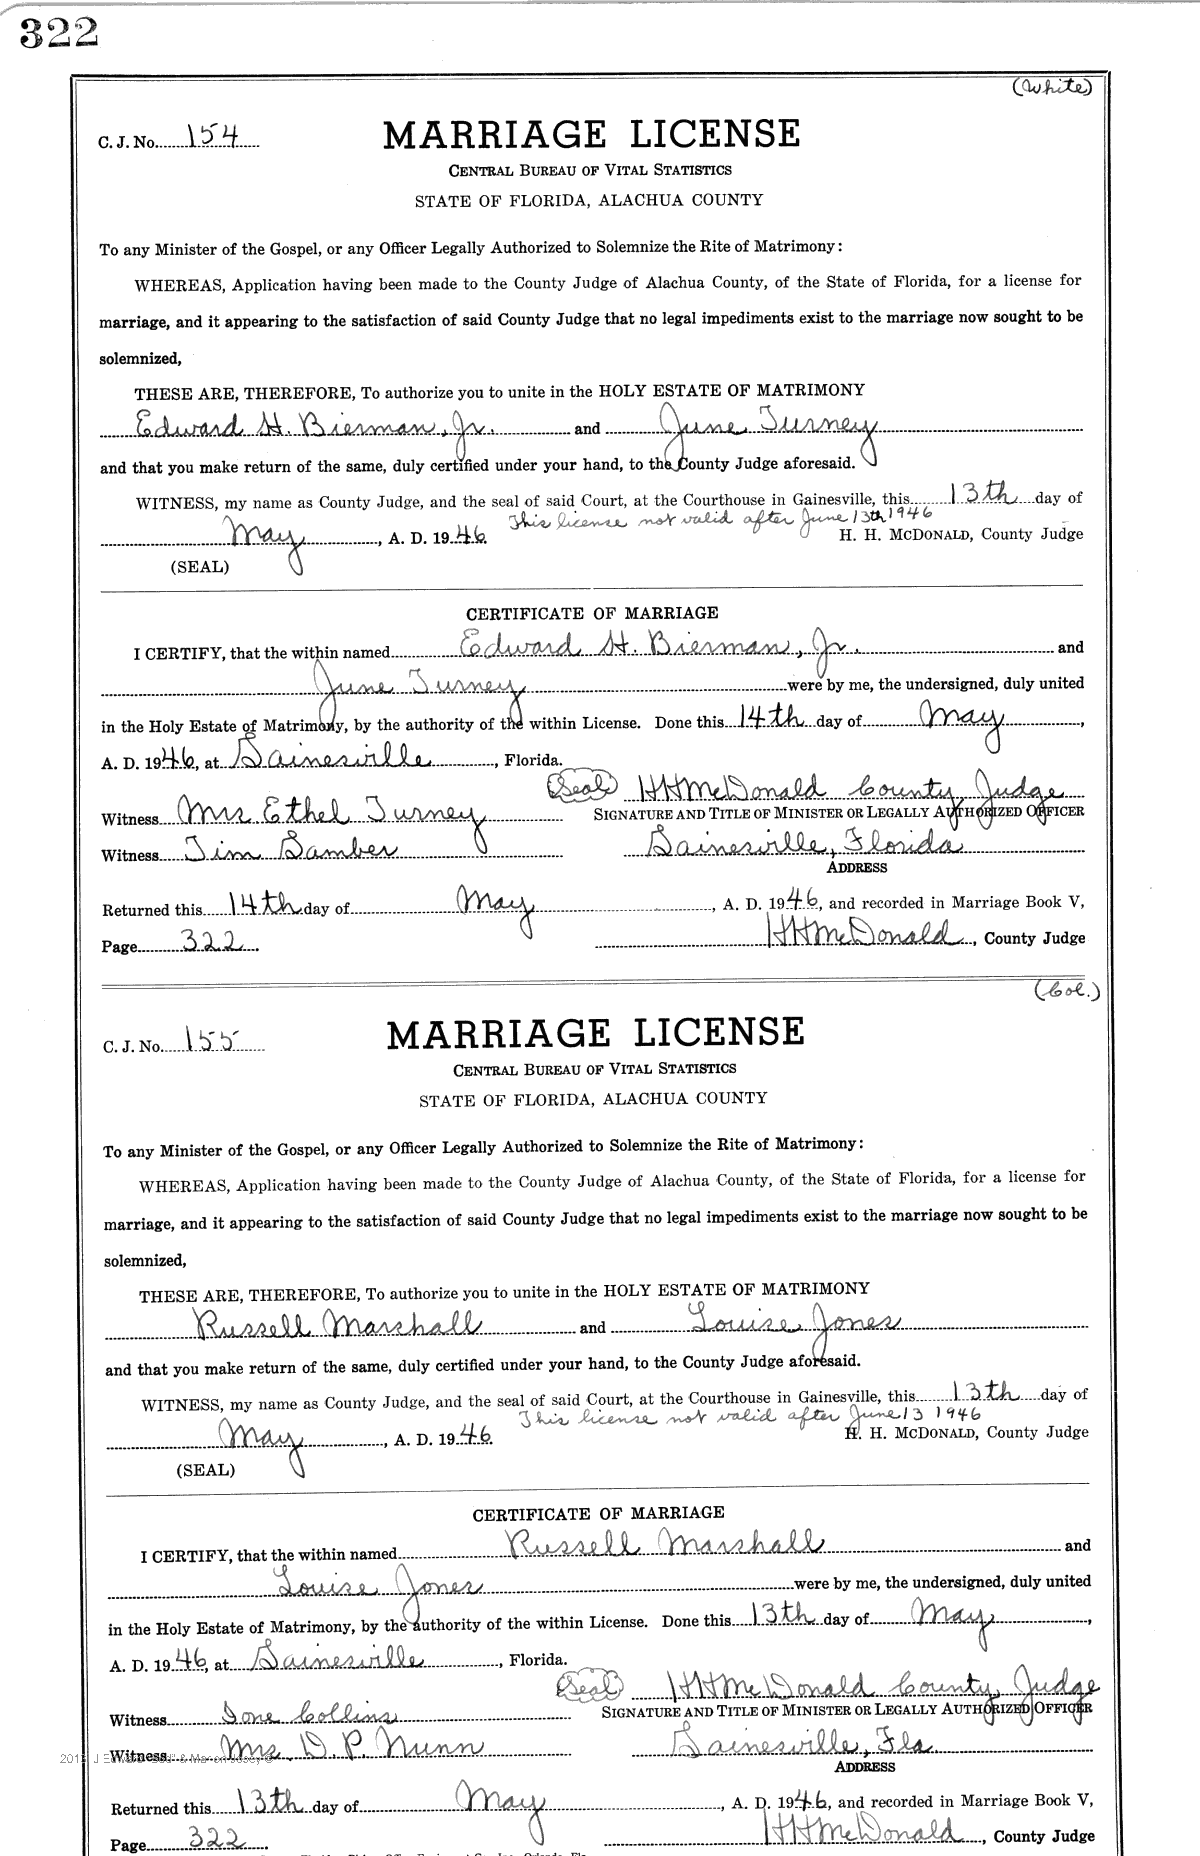 322
(White)
C. J. No. 154
MARRIAGE LICENSE
CENTRAL BUREAU OF VITAL STATISTICS
STATE OF FLORIDA, ALACHUA COUNTY
To any Minister of the Gospel, or any Officer Legally Authorized to Solemnize the Rite of Matrimony:
WHEREAS, Application having been made to the County Judge of Alachua County, of the State of Florida, for a license for
marriage, and it appearing to the satisfaction of said County Judge that no legal impediments exist to the marriage now sought to be
solemnized,
THESE ARE, THEREFORE, To authorize you to unite in the HOLY ESTATE OF MATRIMONY
Edward H. Bierman, Jr. and June Turney
and that you make return of the same, duly certified under your hand, to the County Judge aforesaid.
WITNESS, my name as County Judge, and the seal of said Court, at the Courthouse in Gainesville, this 13th day of
This license not valid after June 13th 1946
May, A. D. 19 46 H. H. McDONALD, County Judge
(SEAL)
CERTIFICATE OF MARRIAGE
I CERTIFY, that the within named Edward H. Bierman, Jr. and
June Turney were by me, the undersigned, duly united
in the Holy Estate of Matrimony, by the authority of the within License. Done this 14th day of May,
A. D. 1946, at Gainesville, Florida.
(Seal) HHMcDonald County Judge
Witness Mrs Ethel Turney SIGNATURE AND TITLE OF MINISTER OR LEGALLY AUTHORIZED OFFICER
Witness Jim Gamber Gainesville, Florida
ADDRESS
Returned this 14th day of May, A. D. 1946, and recorded in Marriage Book V,
Page 322 HHMcDonald, County Judge
(Col.)
C. J. No. 155
MARRIAGE LICENSE
CENTRAL BUREAU OF VITAL STATISTICS
STATE OF FLORIDA, ALACHUA COUNTY
To any Minister of the Gospel, or any Officer Legally Authorized to Solemnize the Rite of Matrimony:
WHEREAS, Application having been made to the County Judge of Alachua County, of the State of Florida, for a license for
marriage, and it appearing to the satisfaction of said County Judge that no legal impediments exist to the marriage now sought to be
solemnized,
THESE ARE, THEREFORE, To authorize you to unite in the HOLY ESTATE OF MATRIMONY
Russell Marshall and Louise Jones
and that you make return of the same, duly certified under your hand, to the County Judge aforesaid.
WITNESS, my name as County Judge, and the seal of said Court, at the Courthouse in Gainesville, this 13th day of
This license not valid after June 13 1946
May, A. D. 19 46 H. H. McDONALD, County Judge
(SEAL)
CERTIFICATE OF MARRIAGE
I CERTIFY, that the within named Russell Marshall and
Louise Jones were by me, the undersigned, duly united
in the Holy Estate of Matrimony, by the authority of the within License. Done this 13th day of May,
A. D. 19 46, at Gainesville, Florida.
(Seal) HHMcDonald County Judge
Witness Ione Collins SIGNATURE AND TITLE OF MINISTER OR LEGALLY AUTHORIZED OFFICER
Witness Mrs. D. P. Nunn Gainesville, Fla
ADDRESS
Returned this 13th day of May, A. D. 1946, and recorded in Marriage Book V,
Page 322 HHMcDonald, County Judge